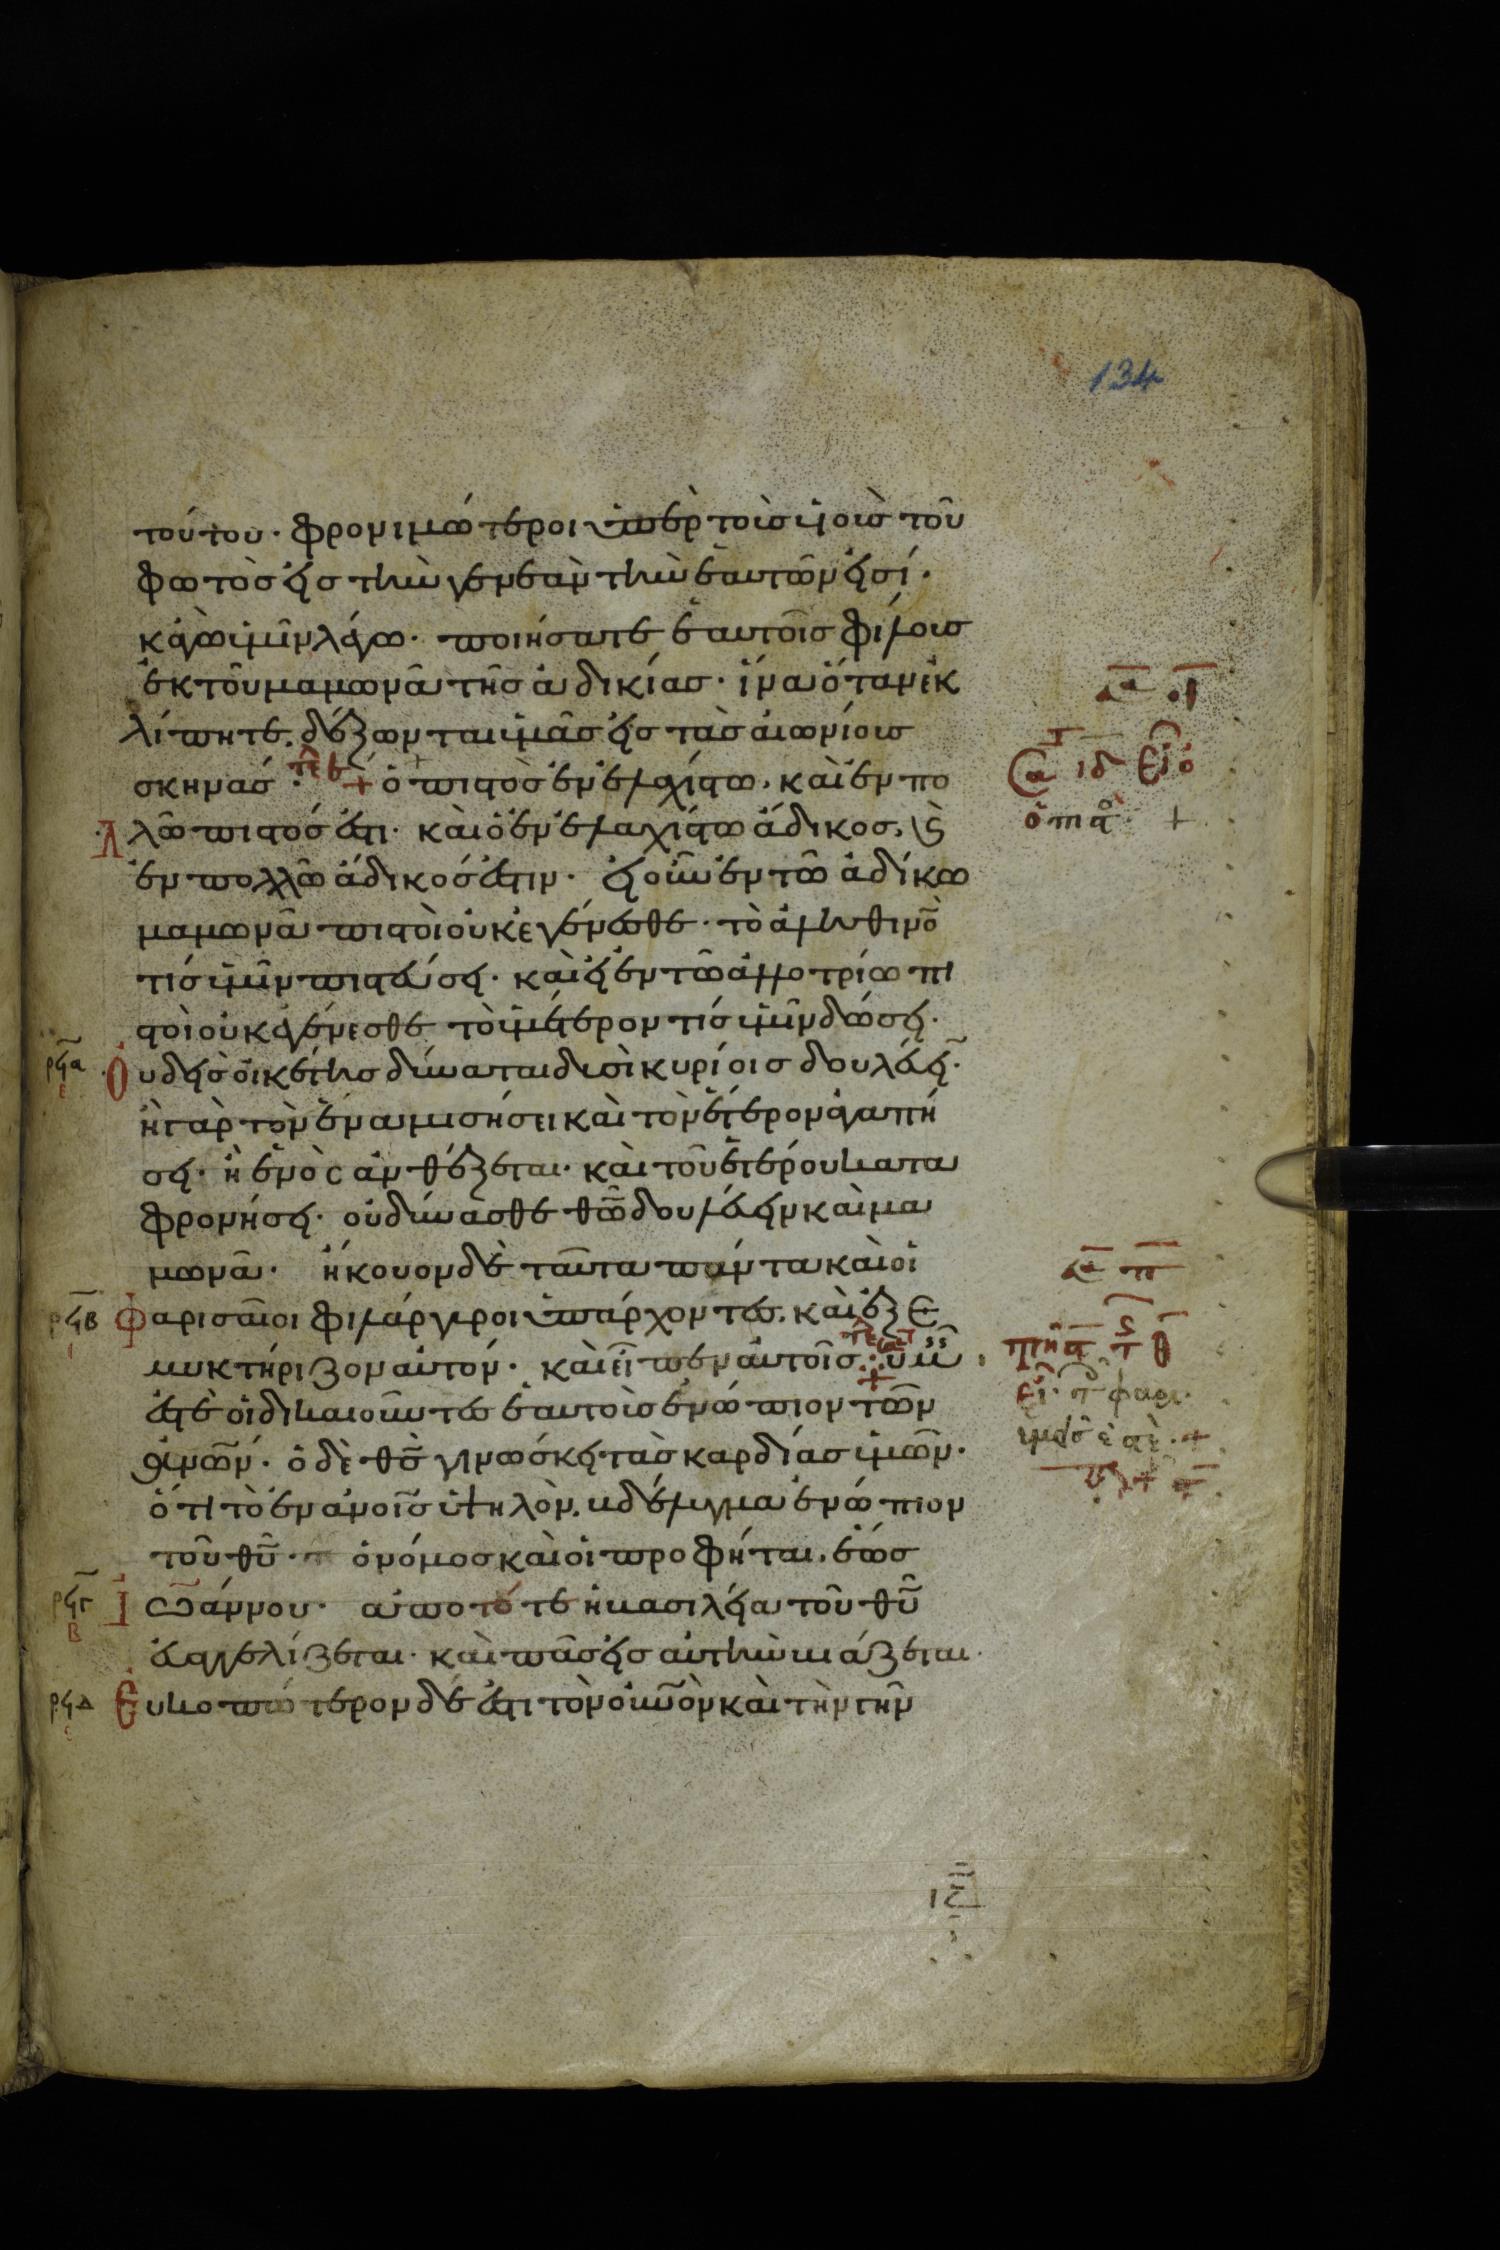 134
τούτου· φρονιμώτεροι ὑπὲρ τοὺς υἱοὺς τοῦ
φωτὸς εἰς τὴν γενεὰν τὴν ἑαυτῶν εἰσί·
κἀγὼ ὑμῖν λέγω· ποιήσατε ἑαυτοῖς φίλους
ἐκ τοῦ μαμωνᾶ τῆς ἀδικίας· ἵνα ὅταν ἐκ
λίπητε, δέξωνται ὑμᾶς εἰς τὰς αἰωνίους
σκηνάς· + ὁ πιστὸς ἐν ἐλαχίστω, καὶ ἐν πο
λλῶ πιστός ἐστι· καὶ ὁ ἐν ἐλαχίστω ἄδικος, κὶ
ἐν πολλῶ ἄδικός ἐστιν· εἰ οὖν ἐν τῶ ἀδίκω
μαμωνᾶ πιστοὶ οὐκ ἐγένεσθε· τὸ ἀληθινὸ
τίς ὑμῖν πιστεύσει· καὶ εἰ ἐν τῶ ἀλλοτρίω πι
στοὶ οὐκ ἐγένεσθε τὸ ὑμέτερον τίς ὑμῖν δώσει·
ρϟα Οὐδεὶς οἰκέτης δύναται δυσὶ κυρίοις δουλεύειν·
ἢ γὰρ τὸν ἕνα μισήσει καὶ τὸν ἕτερον ἀγαπή
σει· ἢ ἑνὸς ἀνθέξεται· καὶ τοῦ ἑτέρου κατα
φρονήσει· οὐ δύνασθε θῶ δουλεύειν καὶ μα
μωνᾶ· ἤκουον δὲ ταῦτα πάντα καὶ οἱ
ρϟβ Φαρισαῖοι φιλάργυροι ὑπάρχοντες, καὶ ἐξε
μυκτήριζον αὐτόν· καὶ εἶπεν αὐτοῖς· ὑμεῖς
ἐστὲ οἱ δικαιοῦντες ἑαυτοὺς ἐνώπιον τῶν
ἀνῶν· ὁ δὲ θς γινώσκει τὰς καρδίας ὑμῶν·
ὅτι τὸ ἐν ἀνοις ὑψηλὸν, βδέλυγμα ἐνώπιον
τοῦ θυ· ὁ νόμος καὶ οἱ προφῆται, ἕως
ρϟγ Ἰωάννου· ἀπο τότε ἡ βασιλεία τοῦ θυ
εὐαγγελίζεται· καὶ πᾶς εἰς αὐτὴν βιάζεται·
ρϟδ Εὐκοπώτερον δέ ἐστι τὸν οὐνὸν καὶ τὴν γῆν
ιζ